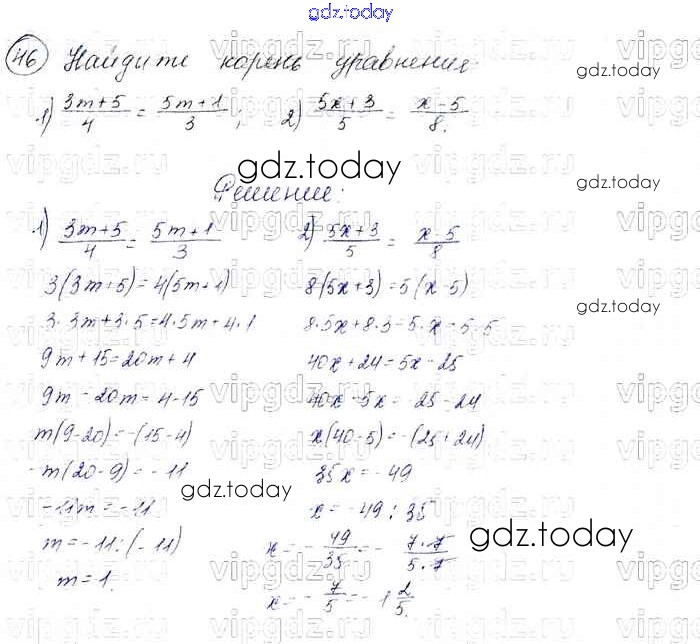 gdz.today
46 Найдите корень уравнения:
1) (3m+5)/4 = (5m+1)/3; 2) (5x+3)/5 = (x-5)/8.
gdz.today
gdz.today
gdz.today
Решение:
1) (3m+5)/4 = (5m+1)/3
3(3m+5)=4(5m+1)
3·3m+3·5=4·5m+4·1
9m+15=20m+4
9m-20m=4-15
m(9-20)=-(15-4)
-m(20-9)=-11
-11m=-11
m=-11:(-11)
m=1.
2) (5x+3)/5 = (x-5)/8
8(5x+3)=5(x-5)
8·5x+8·3=5·x-5·5
40x+24=5x-25
40x-5x=-25-24
x(40-5)=-(25+24)
35x=-49
x=-49:35
x=-49/35=-(7·7)/(5·7)
x=-7/5=-1 2/5.
gdz.today
gdz.today
gdz.today
vipgdz.ru